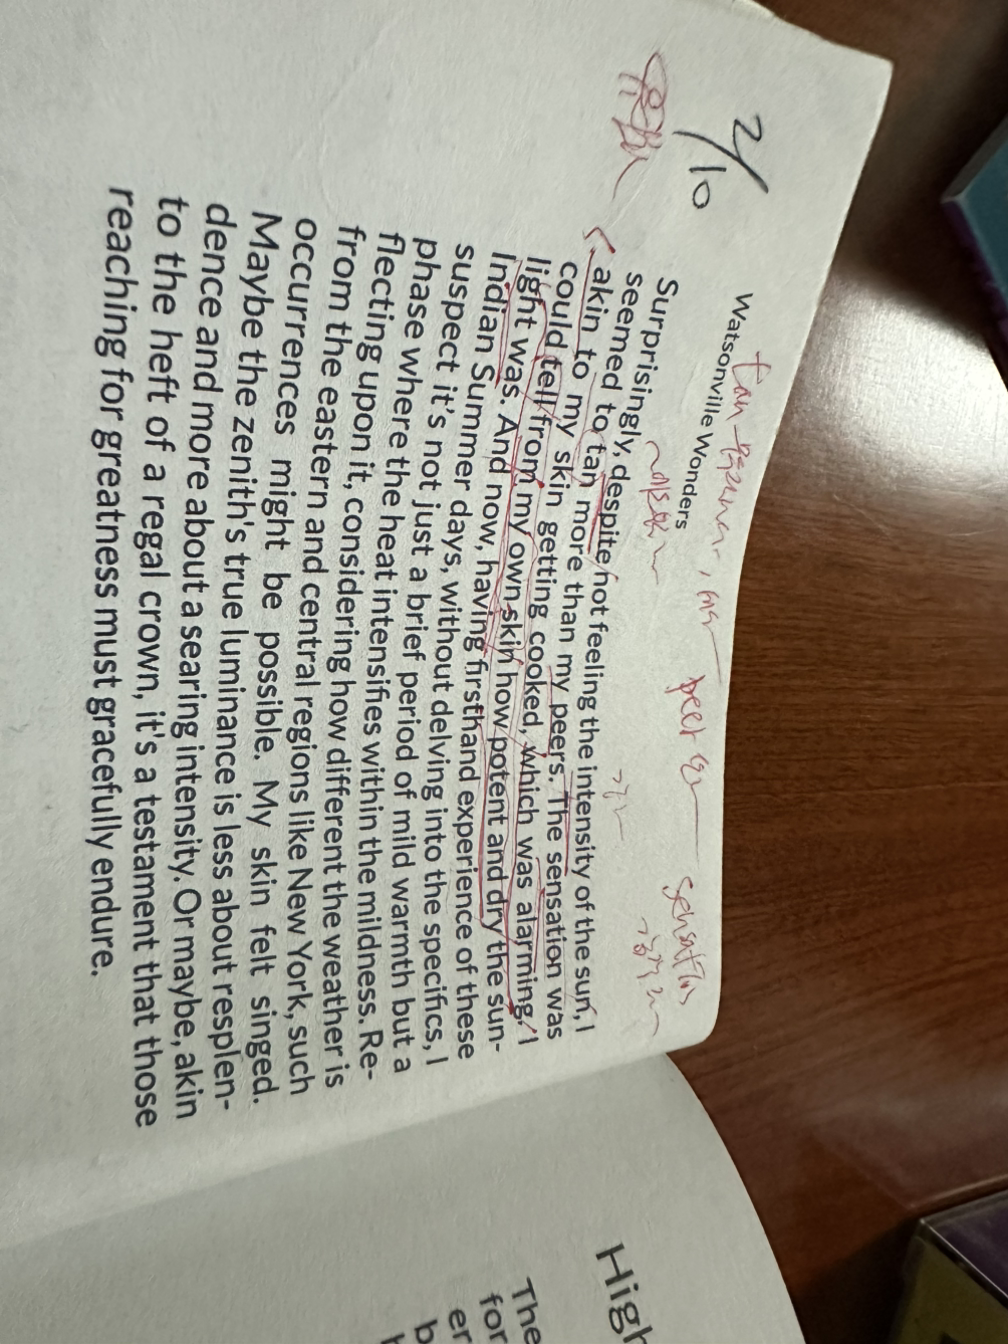 2/10
tan peer sensation
Watsonville Wonders
Surprisingly, despite not feeling the intensity of the sun, I
seemed to tan more than my peers. The sensation was
akin to my skin getting cooked, which was alarming. I
could tell from my own skin how potent and dry the sun-
light was. And now, having firsthand experience of these
Indian Summer days, without delving into the specifics, I
suspect it's not just a brief period of mild warmth but a
phase where the heat intensifies within the mildness. Re-
flecting upon it, considering how different the weather is
from the eastern and central regions like New York, such
occurrences might be possible. My skin felt singed.
Maybe the zenith's true luminance is less about resplen-
dence and more about a searing intensity. Or maybe, akin
to the heft of a regal crown, it's a testament that those
reaching for greatness must gracefully endure.
High
The
for
er
b